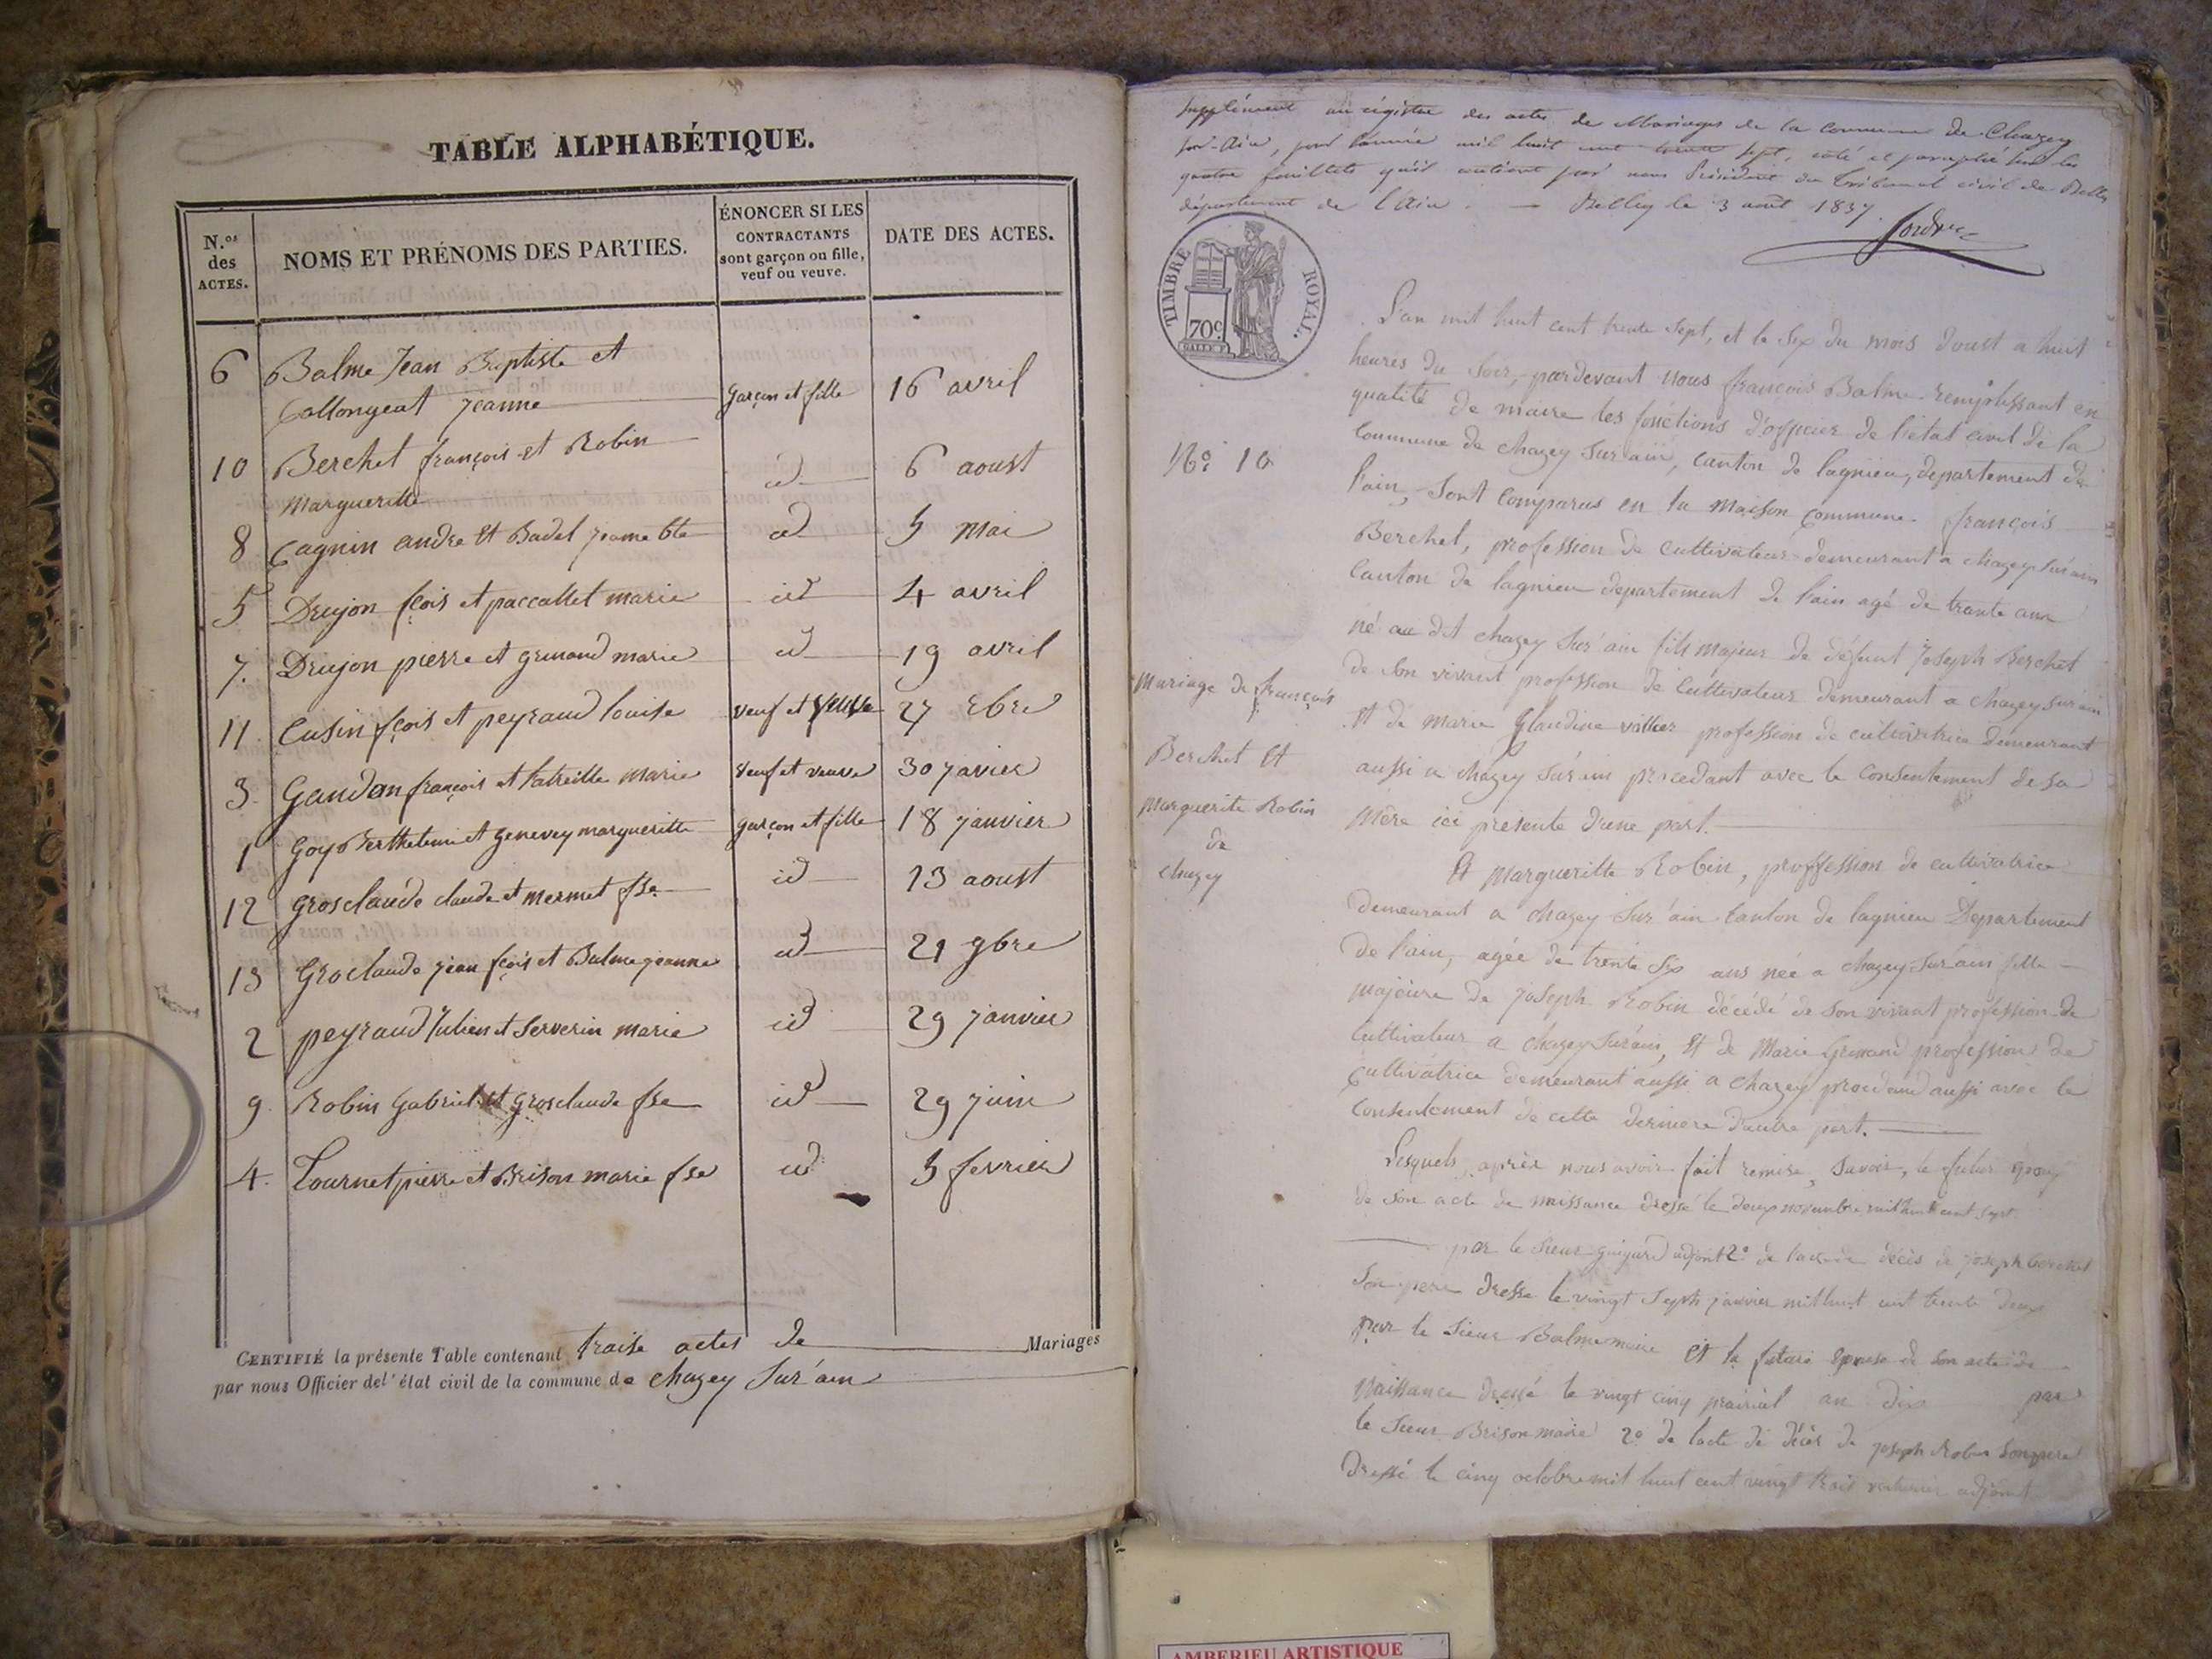 TABLE ALPHABÉTIQUE.
N.os des ACTES.
NOMS ET PRÉNOMS DES PARTIES.
ÉNONCER SI LES CONTRACTANTS sont garçon ou fille, veuf ou veuve.
DATE DES ACTES.
6 Balme Jean Baptiste et
Collongeat Jeanne garçon et fille 16 avril
10 Berchet françois et Robin id 6 aoust
Margueritte
8 Cagnin andre et Badel jeanne bte id 5 mai
5 Drujon fçois et paccallet marie id 4 avril
7. Drujon pierre et grumand marie id 19 avril
11 Cusin fçois et peyraud louise veuf et veuve 27
3. Gandon françois et Latreille marie veuf et veuve 30 javier
1 Goy Berthelemi et genevey margueritte garçon et fille 18 janvier
12 grosclaude claude et mermet fse id 13 aoust
13 Groclaude jean fçois et Balme jeanne id 21 9bre
2 peyraud Julien et Serverin marie id 29 janvier
9. Robin Gabriel et grosclaude fse id 29 juin
4. Tournet pierre et Brison marie fse id 5 fevrier
CERTIFIÉ la présente Table contenant traise actes de Mariages
par nous Officier de l'état civil de la commune de chazey sur ain
supplément au régistre des actes de Mariages de la commune de Chazey
sur-Ain, pour l'année mil huit cent trente sept, coté et paraphé sur les
quatre feuillets qu'il contient par nous Président du Tribunal civil de Belley
département de l'Ain. — Belley le 3 août 1837.
TIMBRE ROYAL.
70c
L'an mil huit cent trente sept, et le six du mois d'oust a huit
heures du soir, pardevant nous françois Balme remplissant en
qualité de maire les fonctions d'officier de l'état civil de la
commune de chazey sur ain, canton de lagnieu, departement de
l'ain, sont comparus en la maison commune françois
Berchet, profession de cultivateur demeurant a chazey sur ain
Canton de lagnieu departement de l'ain agé de trante ans
né au dit chazey sur ain fils majeur de défunt Joseph Berchet
de son vivant profession de cultivateur demeurant a chazey sur ain
et de marie glaudine profession de cultivatrice demeurant
aussi a chazey sur ain procedant avec le consentement de sa
mère ici presente d'une part.
N.o 10
Mariage de françois
Berchet et
Marguerite Robin
de
chazey
Et margueritte Robin, proffession de cultivatrice
demeurant a chazey sur ain canton de lagnieu Departement
de l'ain, agée de trente six ans née a chazey sur ain fille
majeure de joseph Robin décédé de son vivant profession de
cultivateur a chazey sur ain, et de Marie grumand profession de
cultivatrice demeurant aussi a chazey procedand aussi avec le
consentement de cette derniere d'autre part.
Lesquels après nous avoir fait remise, savoir, le futur epoux
de son acte de naissance dressé le deux novembre mil huit cent sept
par le sieur guigard adjoint 2o de l'acte de décès de joseph berchet
son pere dressé le vingt sept janvier mil huit cent trente deux
par le sieur Balme maire et la future epouse de son acte de
Naissance dressé le vingt cinq prairial an dix par
le sieur Brison maire 2o de l'acte de décès de joseph Robin son pere
dressé le cinq octobre mil huit cent vingt trois adjoint
AMBERIEU ARTISTIQUE